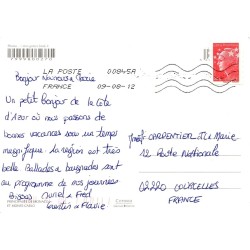 LA POSTE 00845A
FRANCE 09-08-12
Bonjour
Un petit Bonjour de la Côte
d'Azur où nous passons de
bonnes vacances sous un temps
magnifique la région est très
belle Ballades & baignades sont
au programme de nos journées
Bisous & Fred
Quentin & Flavie
CARPENTIER JJ Marie
12 Route Nationale
02220 LOUATELLES
FRANCE